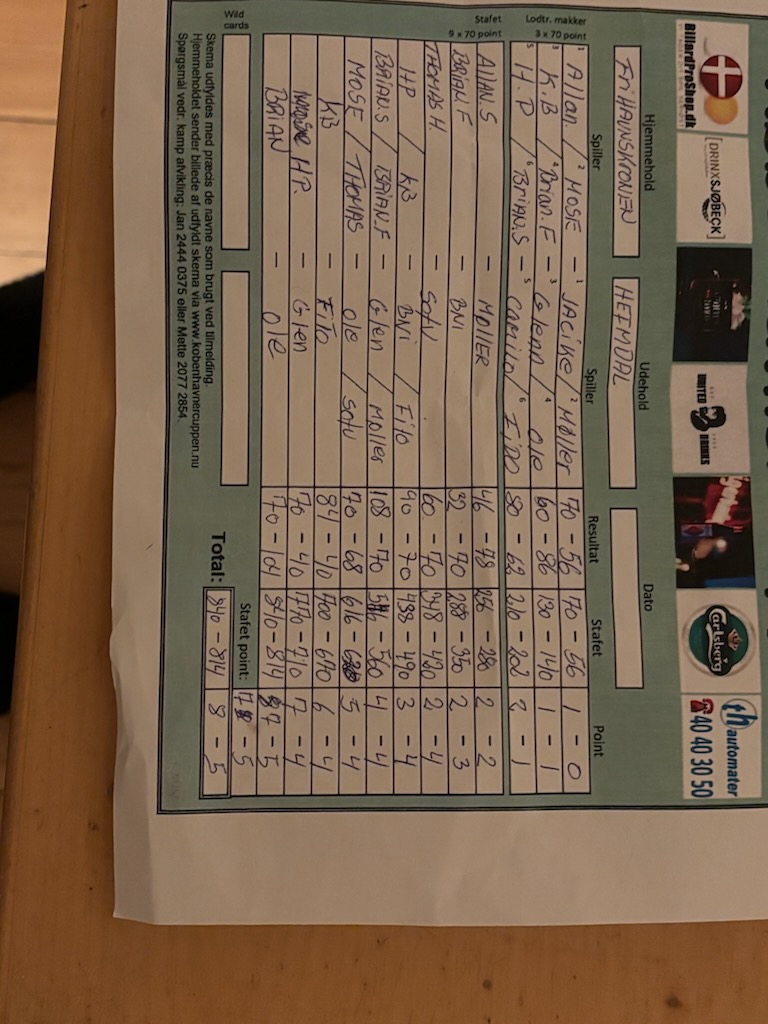 BilliardProShop.dk
[DRINXSJØBECK]
UNITED DRINKS
Carlsberg
th automater
40 40 30 50
Hjemmehold Udehold Dato
FRIHAVNSKRONEN HEIMDAL
Spiller Spiller Resultat Stafet Point
Lodtr. makker
3 x 70 point
1 Allan. / 2 MOSE - 1 JACIKE / 2 Møller 70 - 56 70 - 56 1 - 0
3 K.B / 4 Brian.F - 3 Glenn / 4 Ole 60 - 86 130 - 140 1 - 1
5 H.P / 6 Brian.S - 5 Camillo / 6 FIDO 80 - 62 210 - 202 2 - 1
Stafet
9 x 70 point
Allan.S - MØLLER 46 - 78 256 - 280 2 - 2
BRIAN.F - BNI 32 - 70 288 - 350 2 - 3
THOMAS H - Sofu 60 - 70 348 - 420 2 - 4
HP / KB - BNI / Fifo 90 - 70 438 - 490 3 - 4
BRIAN S / BRIAN.F - Glen / Møller 108 - 70 - 560 4 - 4
MOSE / THOMAS - Ole / Sofu 70 - 68 616 - 4
KB - Fifo 84 - 40 700 - 670 6 - 4
HP. - Glen 70 - 40 770 - 710 7 - 4
BRIAN - Ole 70 - 104 840 - 814 7 - 5
Stafet point: - 5
Wild cards
Total: 840 - 814 8 - 5
Skema udfyldes med præcis de navne som brugt ved tilmelding.
Hjemmeholdet sender billede af udfyldt skema via www.kobenhavnercuppen.nu
Spørgsmål vedr. kamp afvikling: Jan 2444 0375 eller Mette 2077 2854.